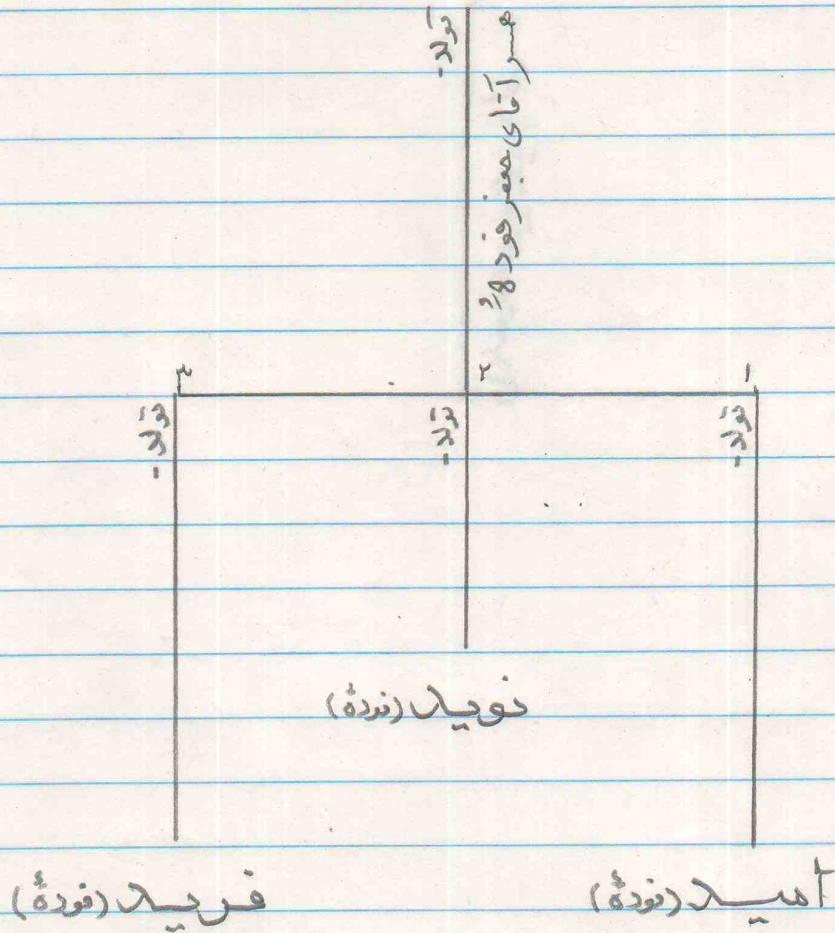 تولد-
همسر آقای جعفر فوده‌ٔ
۱
۲
۳
تولد-
تولد-
تولد-
نوید (فودهٔ)
امید (فودهٔ)
فرید (فودهٔ)